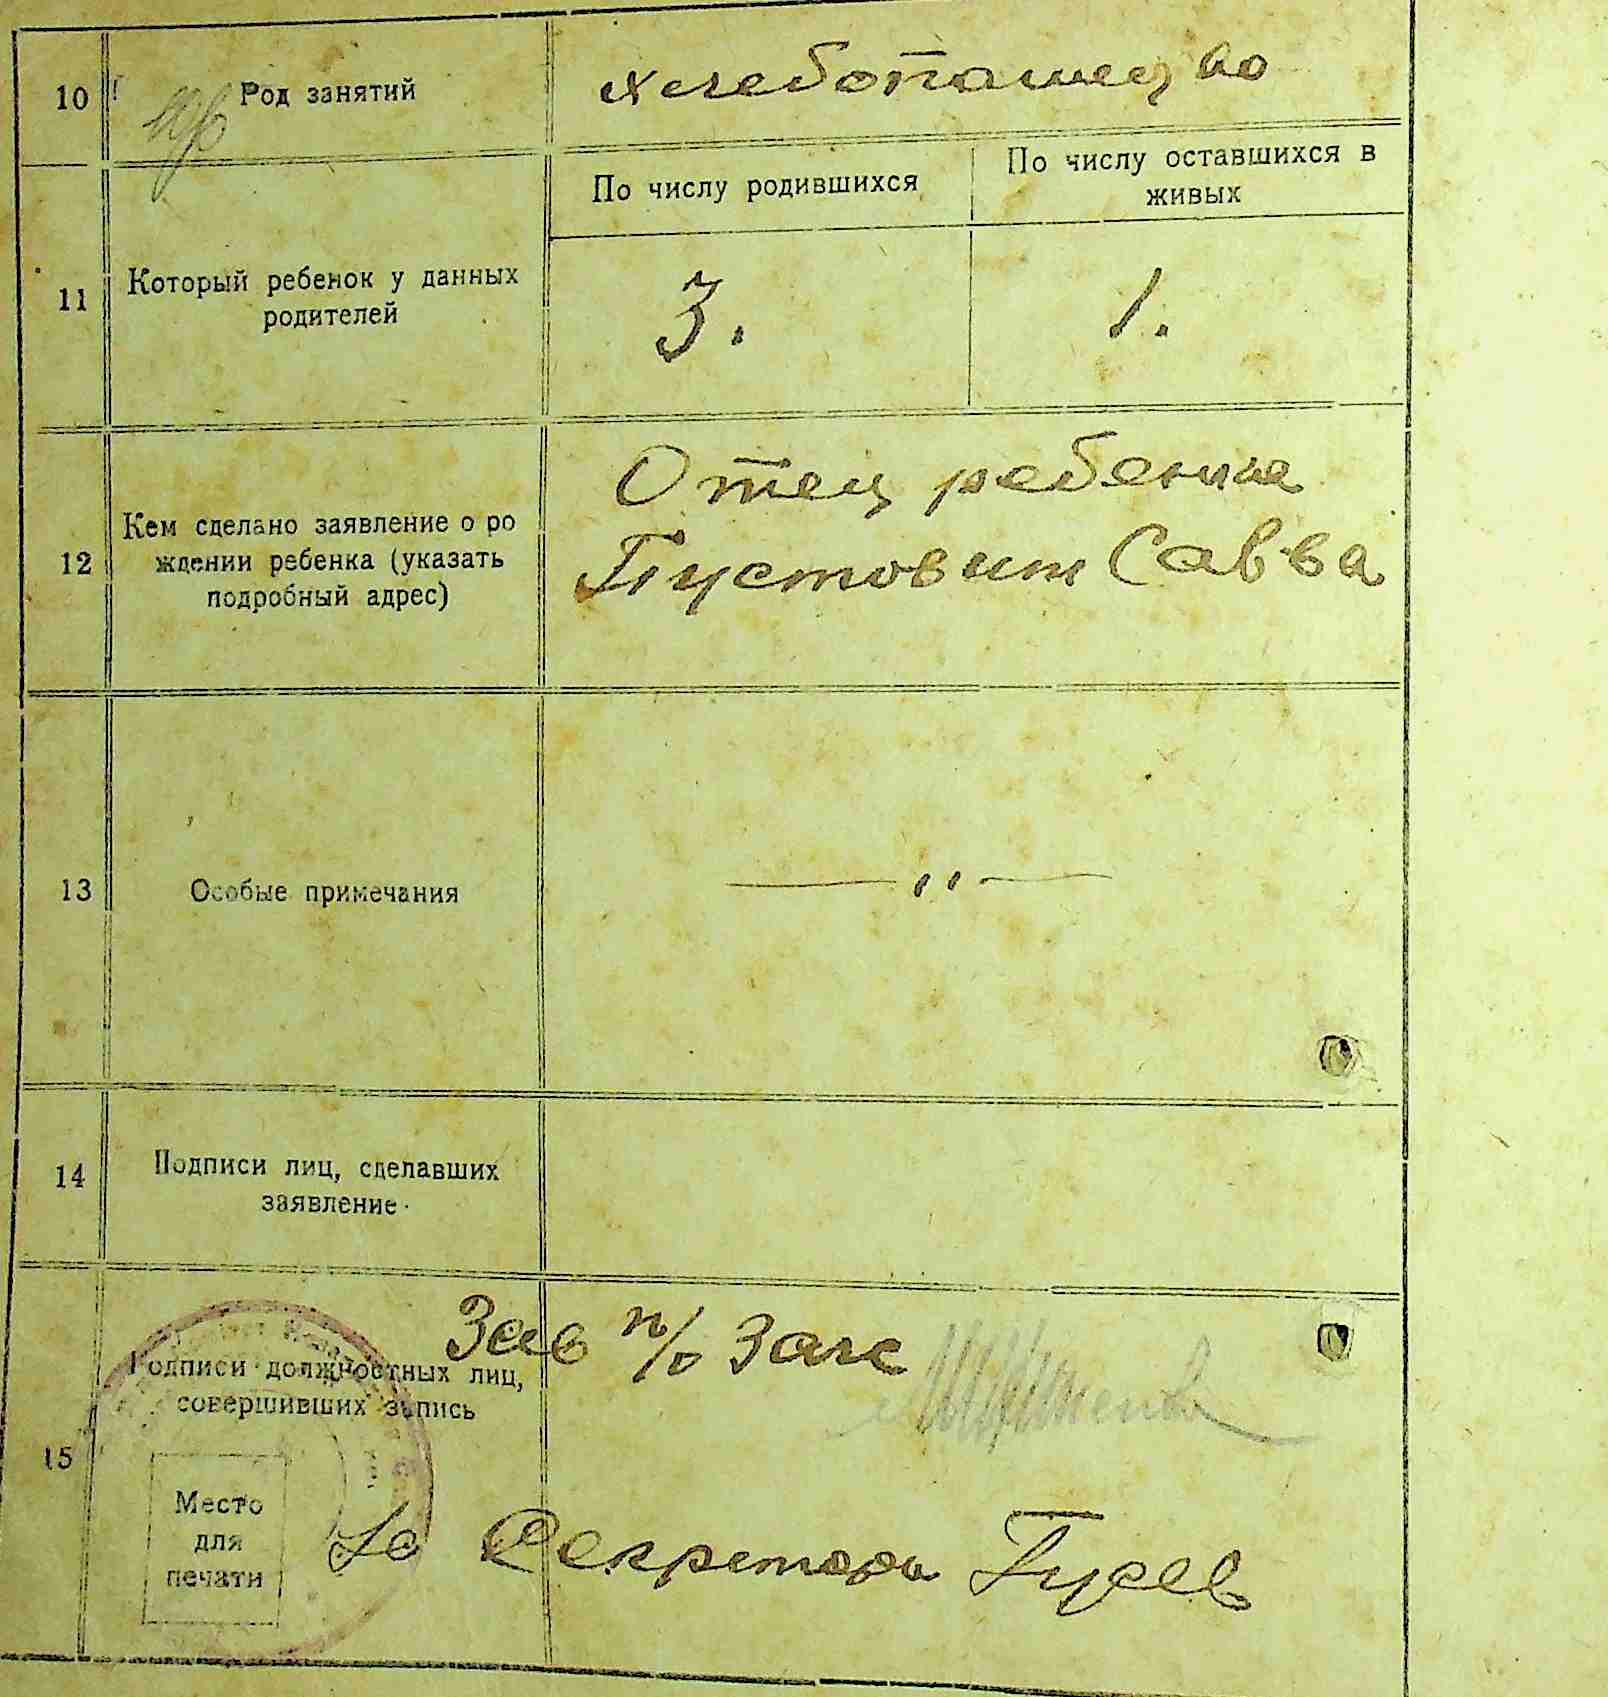 10 Род занятий хлебопашество
По числу родившихся
По числу оставшихся в
живых
11 Который ребенок у данных
родителей
3. 1.
12 Кем сделано заявление о ро
ждении ребенка (указать
подробный адрес)
Отец ребенка
Пустовит Савва
13 Особые примечания — " —
14 Подписи лиц, сделавших
заявление
Зав п/о Загс
15 Подписи должностных лиц,
совершивших запись
Место
для
печати
Секретарь Гусев